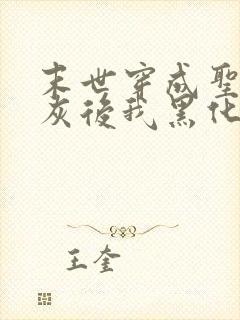 末世穿成聖
灰後我黑化
王奎